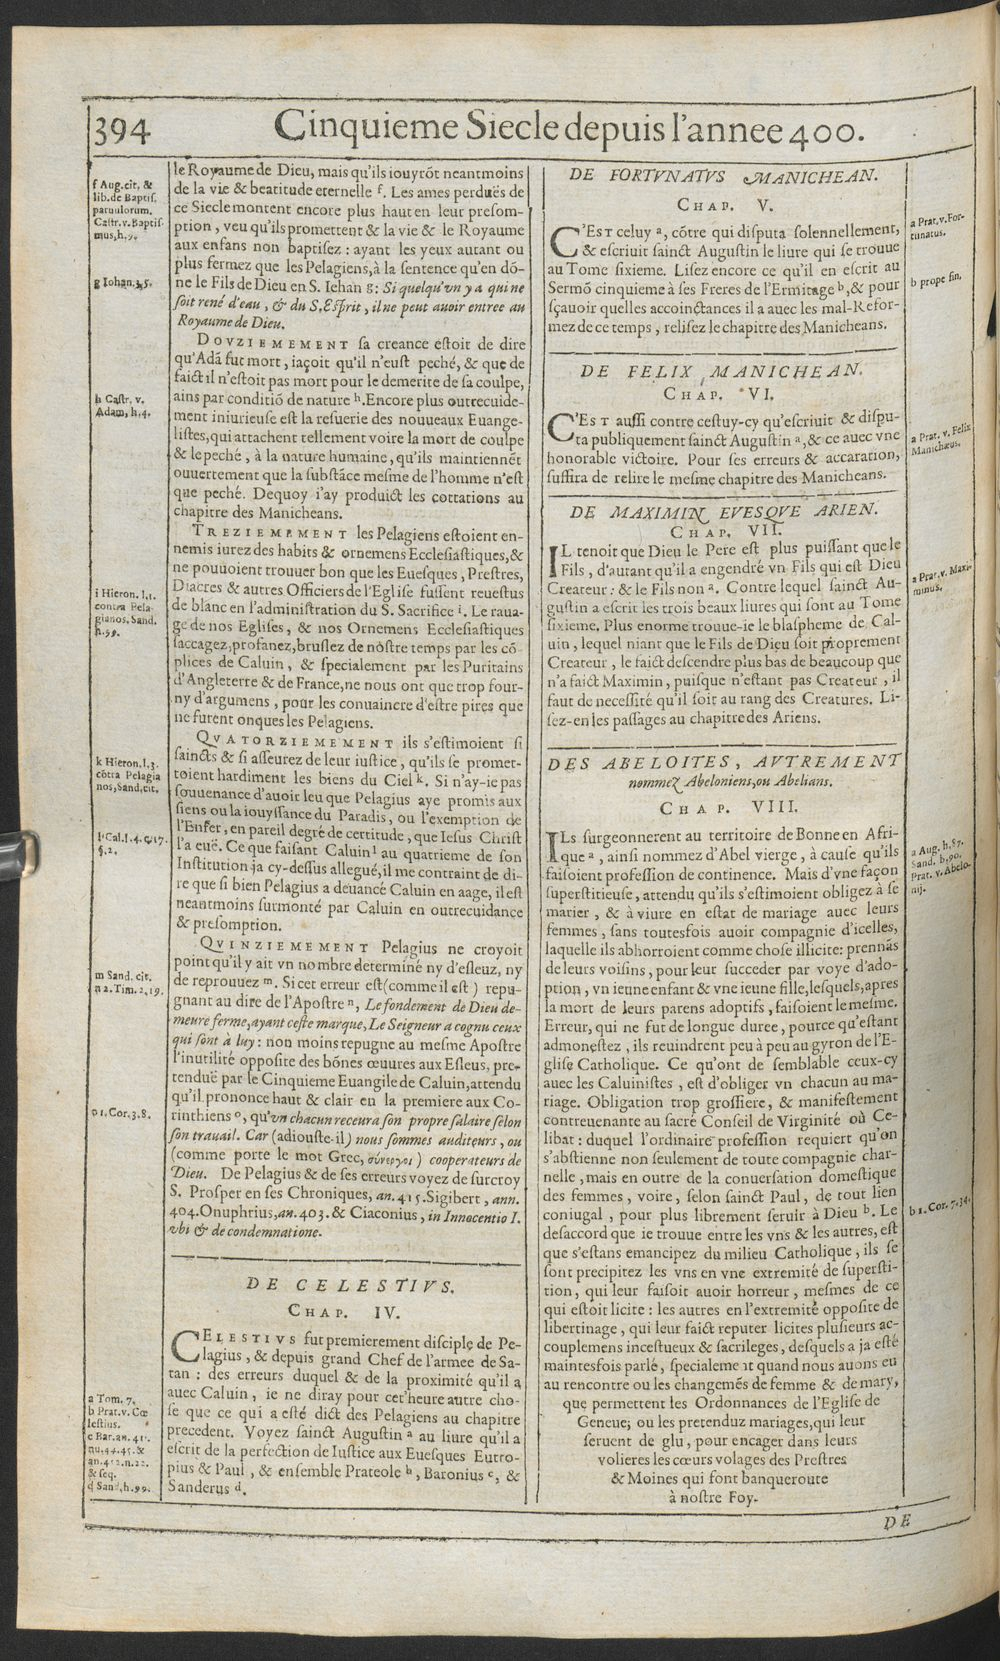 394 Cinquieme Siecle depuis l'annee 400.
le Royaume de Dieu, mais qu'ils iouyrõt neantmoins
de la vie & beatitude eternelle f. Les ames perduës de
ce Siecle montent encore plus haut en leur presom-
ption, veu qu'ils promettent & la vie & le Royaume
aux enfans non baptisez : ayant les yeux autant ou
plus fermez que les Pelagiens, à la sentence qu'en dõ-
ne le Fils de Dieu en S. Iehan g: Si quelqu'vn y a qui ne
soit rené d'eau, & du S. Esprit, il ne peut auoir entree au
Royaume de Dieu.
DOVZIEMEMENT sa creance estoit de dire
qu'Adã fut mort, iaçoit qu'il n'eust peché, & que de
faict il n'estoit pas mort pour le demerite de sa coulpe,
ains par conditiõ de nature h. Encore plus outrecuide-
ment iniurieuse est la resuerie des nouueaux Euange-
listes, qui attachent tellement voire la mort de coulpe
& le peché, à la nature humaine, qu'ils maintiennẽt
ouuertement que la substãce mesme de l'homme n'est
que peché. Dequoy i'ay produict les cottations au
chapitre des Manicheans.
TREZIEMEMENT les Pelagiens estoient en-
nemis iurez des habits & ornemens Ecclesiastiques, &
ne pouuoient trouuer bon que les Euesques, Prestres,
Diacres & autres Officiers de l'Eglise fussent reuestus
de blanc en l'administration du S. Sacrifice i. Le raua-
ge de nos Eglises, & nos Ornemens Ecclesiastiques
saccagez, profanez, bruslez de nostre temps par les cõ-
plices de Caluin, & specialement par les Puritains
d'Angleterre & de France, ne nous ont que trop four-
ny d'argumens, pour les conuaincre d'estre pires que
ne furent onques les Pelagiens.
QVATORZIEMEMENT ils s'estimoient si
saincts & si asseurez de leur iustice, qu'ils se promet-
toient hardiment les biens du Ciel k. Si n'ay-ie pas
souuenance d'auoir leu que Pelagius aye promis aux
siens ou la iouyssance du Paradis, ou l'exemption de
l'Enfer, en pareil degré de certitude, que Iesus Christ
l'a euë. Ce que faisant Caluin l au quatrieme de son
Institution ja cy-dessus allegué, il me contraint de di-
re que si bien Pelagius a deuancé Caluin en aage, il est
neantmoins surmonté par Caluin en outrecuidance
& presomption.
QVINZIEMEMENT Pelagius ne croyoit
point qu'il y ait vn nombre determiné ny d'esleuz, ny
de reprouuez m. Si cet erreur est (comme il est) repu-
gnant au dire de l'Apostre n, Le fondement de Dieu de-
meure ferme, ayant ceste marque, Le Seigneur a cognu ceux
qui sont à luy : non moins repugne au mesme Apostre
l'inutilité opposite des bõnes œuures aux Esleus, pre-
tenduë par le Cinquieme Euangile de Caluin, attendu
qu'il prononce haut & clair en la premiere aux Co-
rinthiens o, qu'vn chacun receura son propre salaire selon
son trauail. Car (adiouste-il) nous sommes auditeurs, ou
(comme porte le mot Grec, σύνεργοι) cooperateurs de
Dieu. De Pelagius & de ses erreurs voyez de surcroy
S. Prosper en ses Chroniques, an. 415. Sigibert, ann.
404. Onuphrius, an. 403. & Ciaconius, in Innocentio I.
vbi & de condemnatione.
DE CELESTIVS.
CHAP. IV.
CELESTIVS fut premierement disciple de Pe-
lagius, & depuis grand Chef de l'armee de Sa-
tan : des erreurs duquel & de la proximité qu'il a
auec Caluin, ie ne diray pour cet'heure autre cho-
se que ce qui a esté dict des Pelagiens au chapitre
precedent. Voyez sainct Augustin a au liure qu'il a
escrit de la perfection de Iustice aux Euesques Eutro-
pius & Paul, & ensemble Prateole b, Baronius c, &
Sanderus d.
f Aug. cit. &
lib. de Baptis.
paruulorum.
Castr. v. Baptis-
mus, h. 5.
g Iohan. 3. 5.
h Castr. v.
Adam, h. 4.
i Hieron. l. 1.
contra Pela-
gianos. Sand.
h. 99.
k Hieron. l. 3.
cõtra Pelagia
nos, Sand. cit.
l Cal. l. 4. c. 17.
§. 2.
m Sand. cit.
n 2. Tim. 2. 19.
o 1. Cor. 3. 8.
a Tom. 7.
b Prat. v. Cœ
lestius.
c Bar. an. 411.
nu. 44. 45. &
an. 412. n. 22.
& seq.
d Sand. h. 99.
DE FORTVNATVS MANICHEAN.
CHAP. V.
C'EST celuy a, cõtre qui disputa solennellement,
& escriuit sainct Augustin le liure qui se trouue
au Tome sixieme. Lisez encore ce qu'il en escrit au
Sermõ cinquieme à ses Freres de l'Ermitage b, & pour
sçauoir quelles accoinctances il a auec les mal-Refor-
mez de ce temps, relisez le chapitre des Manicheans.
DE FELIX MANICHEAN.
CHAP. VI.
C'EST aussi contre cestuy-cy qu'escriuit & dispu-
ta publiquement sainct Augustin a, & ce auec vne
honorable victoire. Pour ses erreurs & accaration,
suffira de relire le mesme chapitre des Manicheans.
DE MAXIMIN EVESQVE ARIEN.
CHAP. VII.
IL tenoit que Dieu le Pere est plus puissant que le
Fils, d'autant qu'il a engendré vn Fils qui est Dieu
Createur : & le Fils non a. Contre lequel sainct Au-
gustin a escrit les trois beaux liures qui sont au Tome
sixieme. Plus enorme trouue-ie le blaspheme de Cal-
uin, lequel niant que le Fils de Dieu soit proprement
Createur, le faict descendre plus bas de beaucoup que
n'a faict Maximin, puisque n'estant pas Createur, il
faut de necessité qu'il soit au rang des Creatures. Li-
sez-en les passages au chapitre des Ariens.
DES ABELOITES, AVTREMENT
nommez Abeloniens, ou Abelians.
CHAP. VIII.
ILs surgeonnerent au territoire de Bonne en Afri-
que a, ainsi nommez d'Abel vierge, à cause qu'ils
faisoient profession de continence. Mais d'vne façon
superstitieuse, attendu qu'ils s'estimoient obligez à se
marier, & à viure en estat de mariage auec leurs
femmes, sans toutesfois auoir compagnie d'icelles,
laquelle ils abhorroient comme chose illicite: prennãs
de leurs voisins, pour leur succeder par voye d'ado-
ption, vn ieune enfant & vne ieune fille, lesquels, apres
la mort de leurs parens adoptifs, faisoient le mesme.
Erreur, qui ne fut de longue duree, pource qu'estant
admonestez, ils reuindrent peu à peu au gyron de l'E-
glise Catholique. Ce qu'ont de semblable ceux-cy
auec les Caluinistes, est d'obliger vn chacun au ma-
riage. Obligation trop grossiere, & manifestement
contreuenante au sacré Conseil de Virginité où Ce-
libat : duquel l'ordinaire profession requiert qu'on
s'abstienne non seulement de toute compagnie char-
nelle, mais en outre de la conuersation domestique
des femmes, voire, selon sainct Paul, de tout lien
coniugal, pour plus librement seruir à Dieu b. Le
desaccord que ie trouue entre les vns & les autres, est
que s'estans emancipez du milieu Catholique, ils se
sont precipitez les vns en vne extremité de supersti-
tion, qui leur faisoit auoir horreur, mesmes de ce
qui estoit licite : les autres en l'extremité opposite de
libertinage, qui leur faict reputer licites plusieurs ac-
couplemens incestueux & sacrileges, desquels a ja esté
maintesfois parlé, specialement quand nous auons eu
au rencontre ou les changemẽs de femme & de mary,
que permettent les Ordonnances de l'Eglise de
Geneue; ou les pretenduz mariages, qui leur
seruent de glu, pour encager dans leurs
volieres les cœurs volages des Prestres
& Moines qui font banqueroute
à nostre Foy.
a Prat. v. For-
tunatus.
b prope fin.
a Prat. v. Felix
Manichæus.
a Prat. v. Maxi-
minus.
a Aug. h. 87.
Sand. h. 90.
Prat. v. Abelo-
nij.
b 1. Cor. 7. 34.
DE